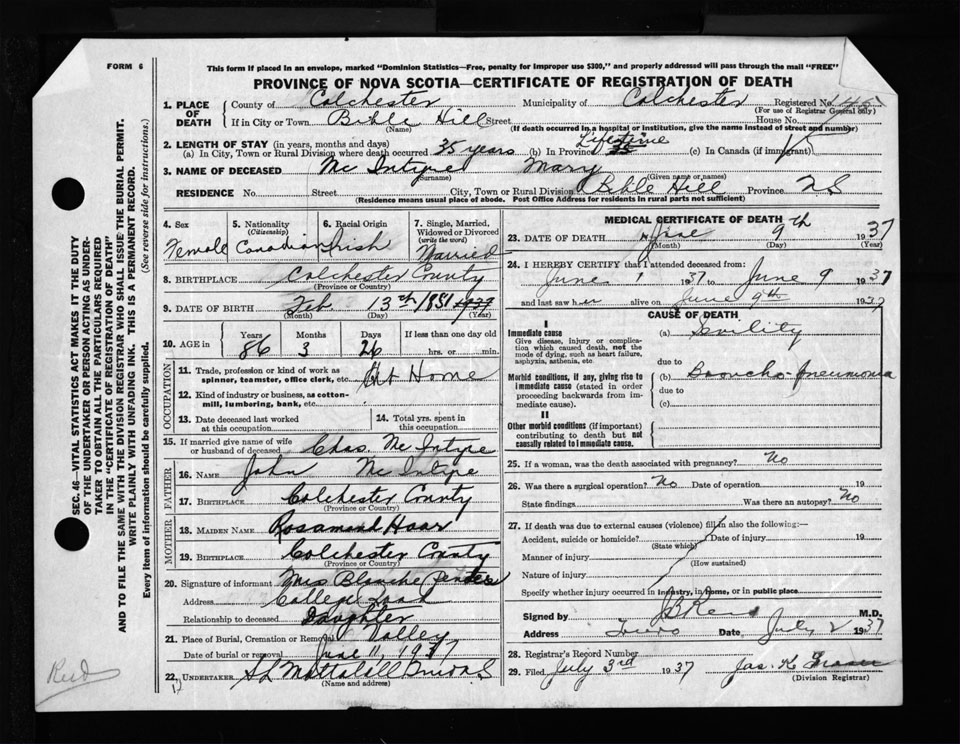 FORM 6
This form if placed in an envelope, marked "Dominion Statistics—Free, penalty for improper use $300," and properly addressed will pass through the mail "FREE"
PROVINCE OF NOVA SCOTIA—CERTIFICATE OF REGISTRATION OF DEATH
SEC. 46—VITAL STATISTICS ACT MAKES IT THE DUTY
OF THE UNDERTAKER OR PERSON ACTING AS UNDER-
TAKER TO OBTAIN ALL THE PARTICULARS REQUIRED
IN THE "CERTIFICATE OF REGISTRATION OF DEATH"
AND TO FILE THE SAME WITH THE DIVISION REGISTRAR WHO SHALL ISSUE THE BURIAL PERMIT.
WRITE PLAINLY WITH UNFADING INK. THIS IS A PERMANENT RECORD.
Every item of information should be carefully supplied. (See reverse side for instructions.)
1. PLACE OF DEATH
County of Colchester Municipality of Colchester Registered No. 145
(For use of Registrar General only)
If in City or Town Bible Hill Street House No.
(Name) (If death occurred in a hospital or institution, give the name instead of street and number)
2. LENGTH OF STAY (in years, months and days)
(a) In City, Town or Rural Division where death occurred 35 years (b) In Province Lifetime 35 (c) In Canada (if immigrant)
3. NAME OF DECEASED Mc Intyre Mary
(Surname) (Given name or names)
RESIDENCE No. Street City, Town or Rural Division Bible Hill Province NS
(Residence means usual place of abode. Post Office Address for residents in rural parts not sufficient)
4. Sex Female
5. Nationality (Citizenship) Canadian
6. Racial Origin Irish
7. Single, Married, Widowed or Divorced (write the word) Married
8. BIRTHPLACE Colchester County
(Province or County)
9. DATE OF BIRTH Feb. 13th 1851
(Month) (Day) (Year)
10. AGE in Years 86 Months 3 Days 26 If less than one day old hrs. or min.
OCCUPATION
11. Trade, profession or kind of work as spinner, teamster, office clerk, etc. At Home
12. Kind of industry or business, as cotton-mill, lumbering, bank, etc.
13. Date deceased last worked at this occupation
14. Total yrs. spent in this occupation
15. If married give name of wife or husband of deceased Chas. Mc Intyre
FATHER
16. NAME John Mc Intyre
17. BIRTHPLACE Colchester County
(Province or County)
MOTHER
18. MAIDEN NAME Rosamand Hoar
19. BIRTHPLACE Colchester County
(Province or County)
20. Signature of informant Mrs Blanche
Address College Road
Relationship to deceased Daughter
21. Place of Burial, Cremation or Removal Valley
Date of burial or removal June 11, 1937
22. UNDERTAKER
(Name and address)
MEDICAL CERTIFICATE OF DEATH
23. DATE OF DEATH June 9th 1937
(Month) (Day) (Year)
24. I HEREBY CERTIFY that I attended deceased from:
June 1 1937 to June 9 1937
and last saw her alive on June 9th 1937
CAUSE OF DEATH
I
Immediate cause
Give disease, injury or complication which caused death, not the mode of dying, such as heart failure, asphyxia, asthenia, etc.
(a) Senility
due to
Morbid conditions, if any, giving rise to immediate cause (stated in order proceeding backwards from immediate cause).
(b) Broncho-pneumonia
due to
(c)
II
Other morbid conditions (if important) contributing to death but not causally related to immediate cause.
25. If a woman, was the death associated with pregnancy? No
26. Was there a surgical operation? No Date of operation 19
State findings Was there an autopsy? No
27. If death was due to external causes (violence) fill in also the following:—
Accident, suicide or homicide? Date of injury 19
(State which)
Manner of injury
(How sustained)
Nature of injury
Specify whether injury occurred in industry, in home, or in public place
Signed by M.D.
Address Truro Date July 2 1937
28. Registrar's Record Number
29. Filed July 3rd 1937 Jas. H Fraser
(Division Registrar)